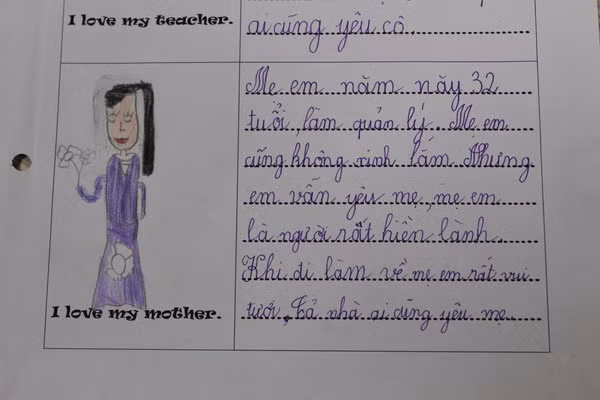 I love my teacher.
ai cũng yêu cô.
Mẹ em năm này 32
tuổi, làm quản lý. Mẹ em
cũng không xinh lắm Nhưng
em vẫn yêu mẹ, mẹ em
là người rất hiền lành.
Khi đi làm về mẹ em rất vui
tươi, Cả nhà ai cũng yêu mẹ.
I love my mother.